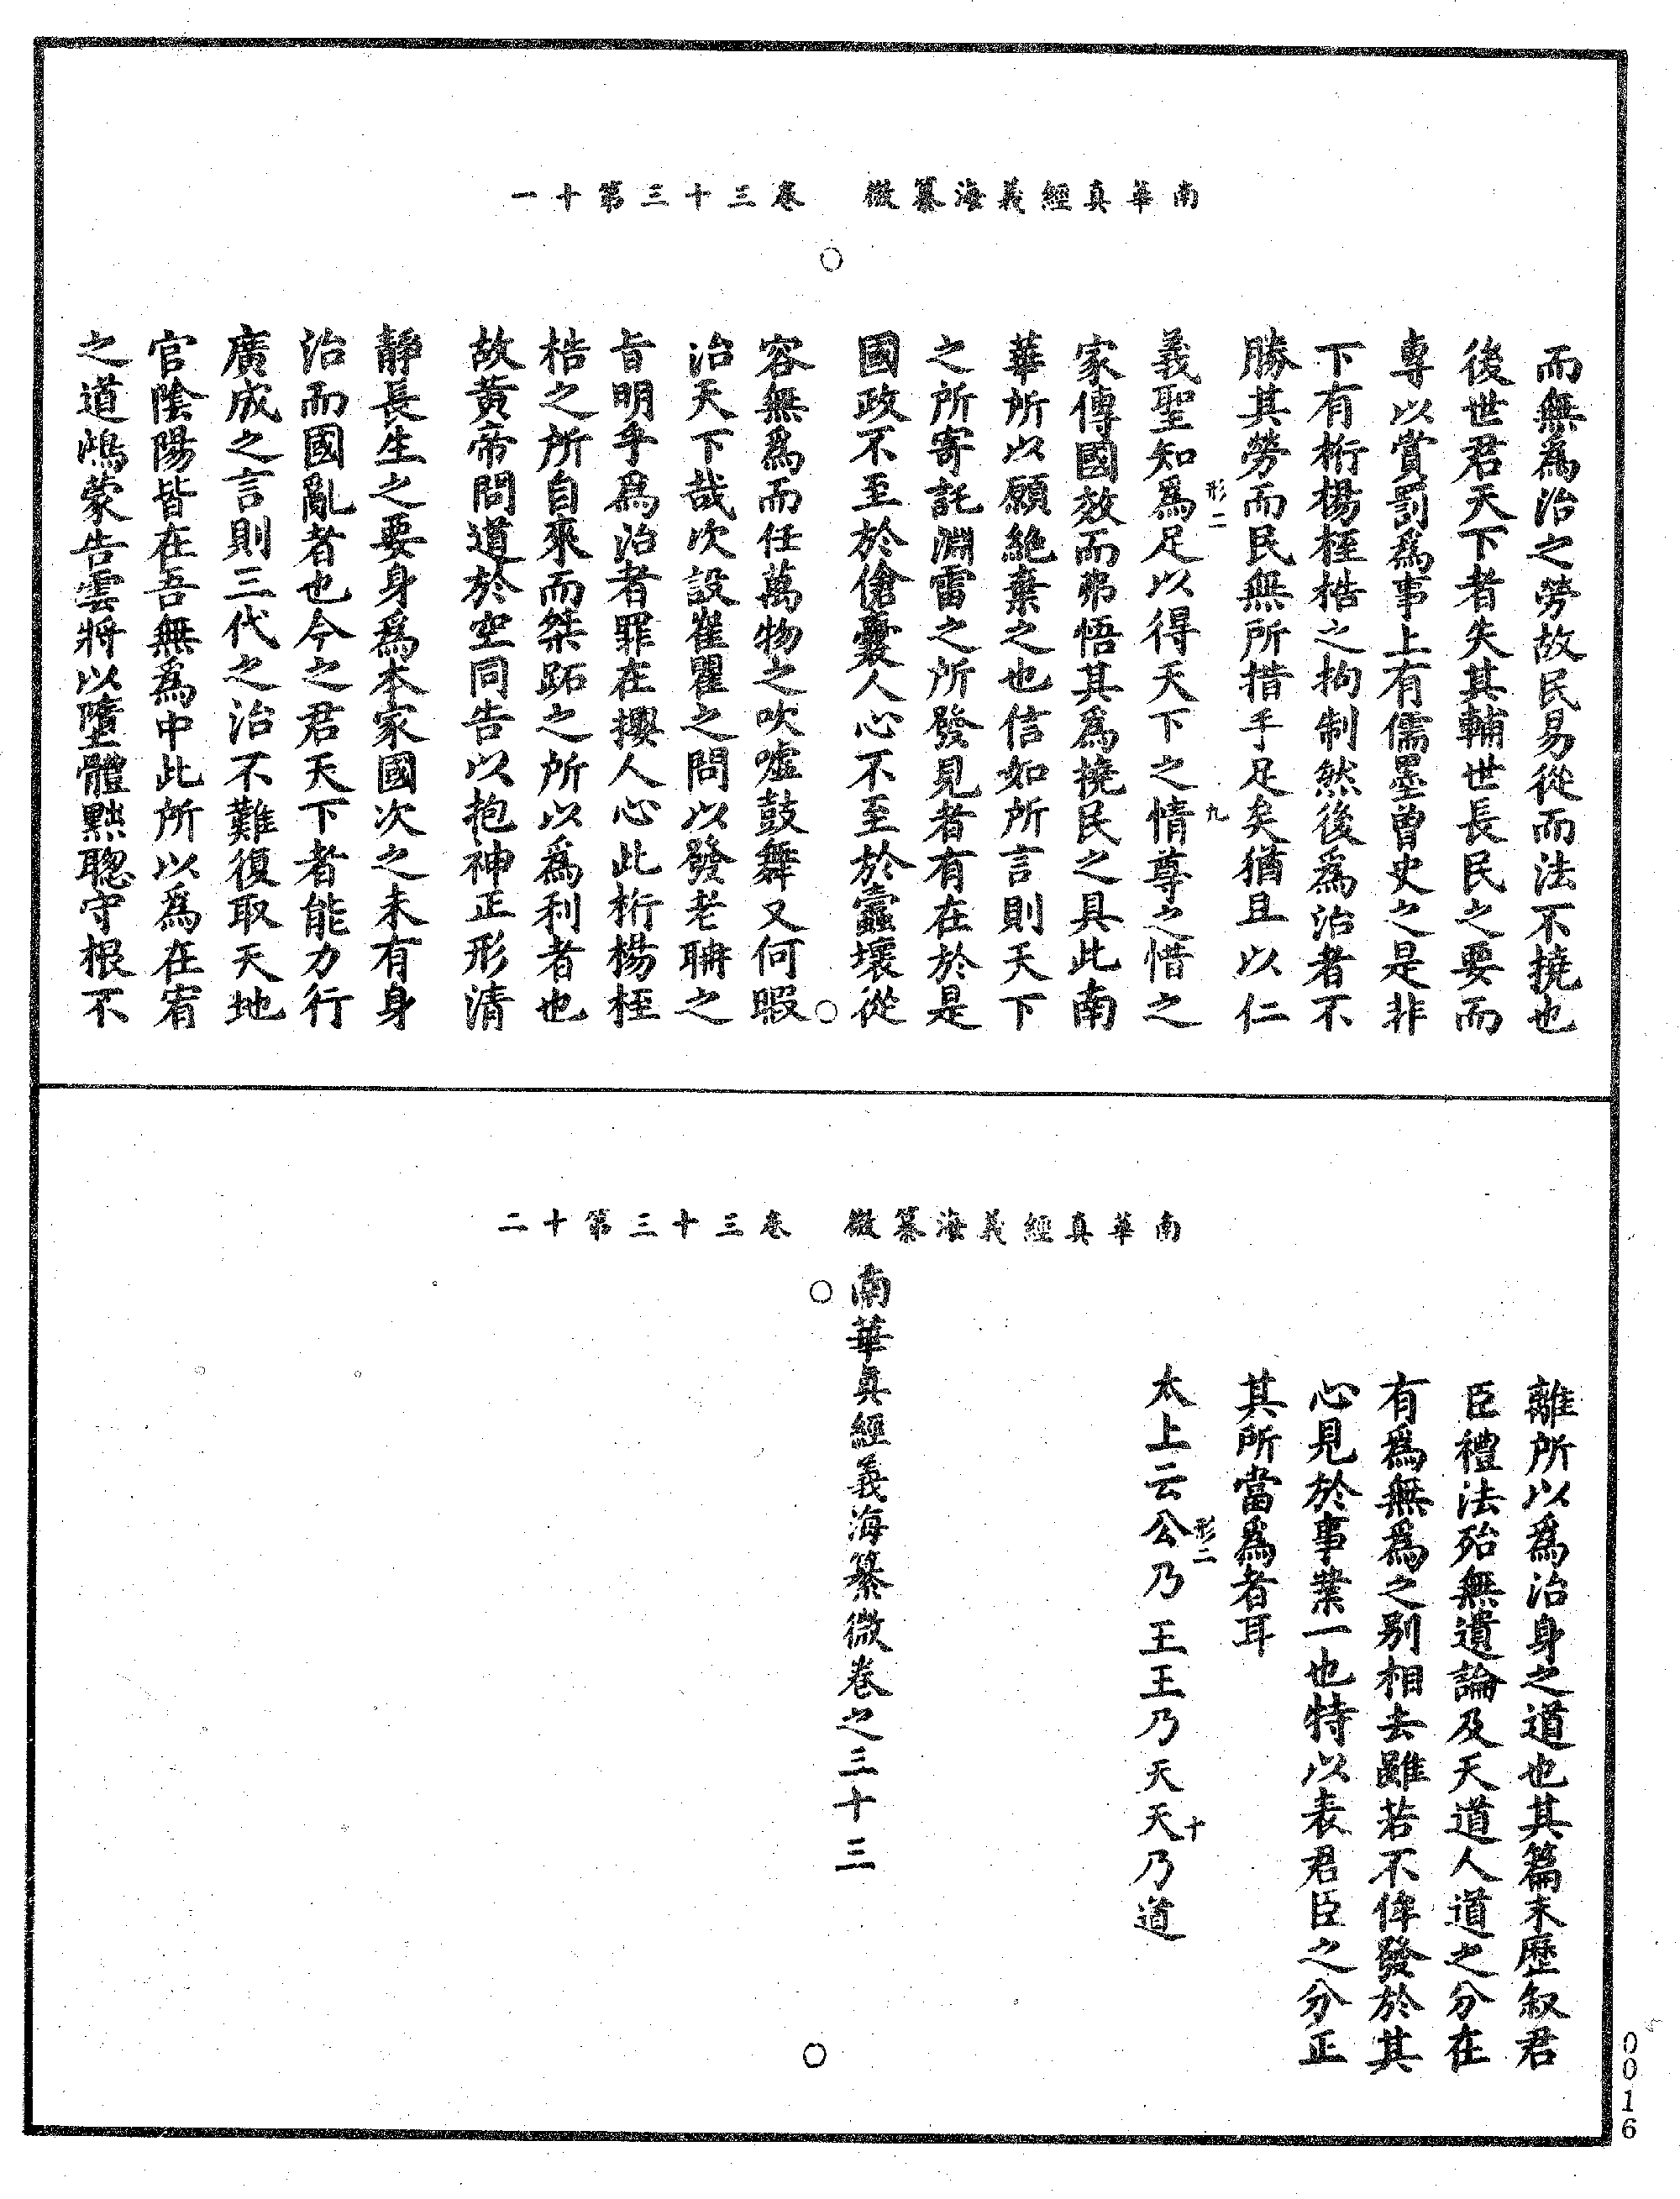 南華真經義海纂微　卷三十三第十一
而無為治之勞故民易從而法不撓也
後世君天下者失其輔世長民之要而
專以賞罰爲事上有儒墨曾史之是非
下有桁楊桎梏之拘制然後為治者不
勝其勞而民無所措手足矣猶且以仁
形二
九
義聖知爲足以得天下之情尊之惜之
家傳國放而弗悟其爲撓民之具此南
華所以願絶棄之也信如所言則天下
之所寄託淵雷之所發見者有在於是
國政不至於傖囊人心不至於蠹壞從
容無爲而任萬物之吹噓鼓舞又何暇
治天下哉次設崔瞿之問以發老聃之
旨明乎爲治者罪在攖人心此桁楊桎
梏之所自來而桀跖之所以爲利者也
故黃帝問道於空同告以抱神正形清
靜長生之要身爲本家國次之未有身
治而國亂者也今之君天下者能力行
廣成之言則三代之治不難復取天地
官陰陽皆在吾無爲中此所以為在宥
之道鴻蒙告雲將以墮體黜聰守根不
南華真經義海纂微　卷三十三第十二
離所以爲治身之道也其篇末歷叙君
臣禮法殆無遺論及天道人道之分在
有爲無爲之别相去雖若不侔發於其
心見於事業一也特以表君臣之分正
其所當爲者耳
形二
十
太上云公乃王王乃天天乃道
南華真經義海纂微卷之三十三
0016